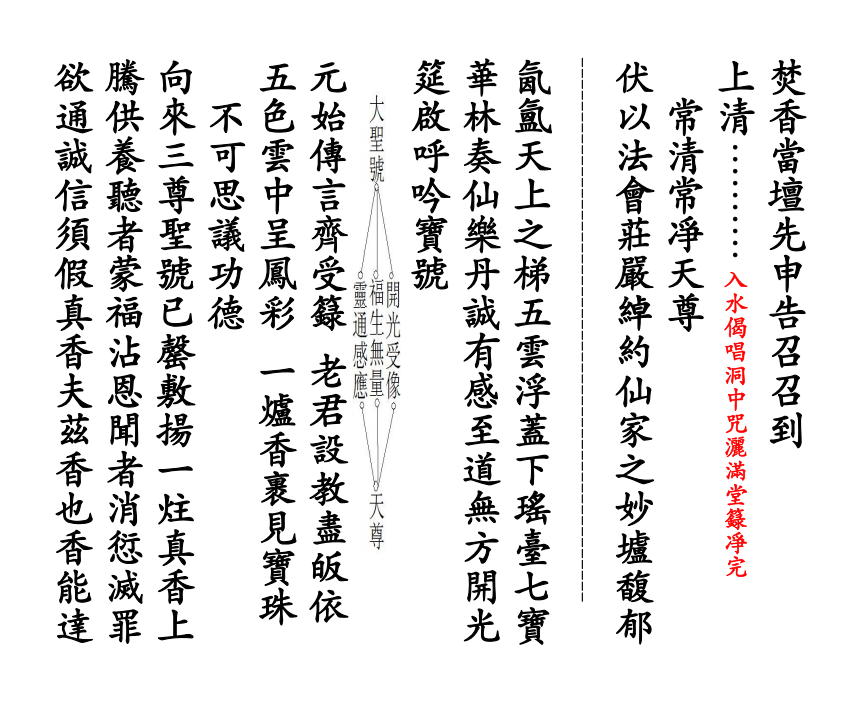 焚香當壇先申告召召到
上清⋯⋯⋯⋯入水偈唱洞中咒灑滿堂籙凈完
常清常凈天尊
伏以法會莊嚴綽約仙家之妙壚馥郁
氤氳天上之梯五雲浮蓋下瑤臺七寶
華林奏仙樂丹誠有感至道無方開光
筵啟呼吟寶號
大聖號
開光受像
福生無量
靈通感應
天尊
元始傳言齊受籙 老君設教盡皈依
五色雲中呈鳳彩 一爐香裹見寶珠
不可思議功德
向來三尊聖號已罄敷揚一炷真香上
騰供養聽者蒙福沾恩聞者消愆滅罪
欲通誠信須假真香夫茲香也香能達